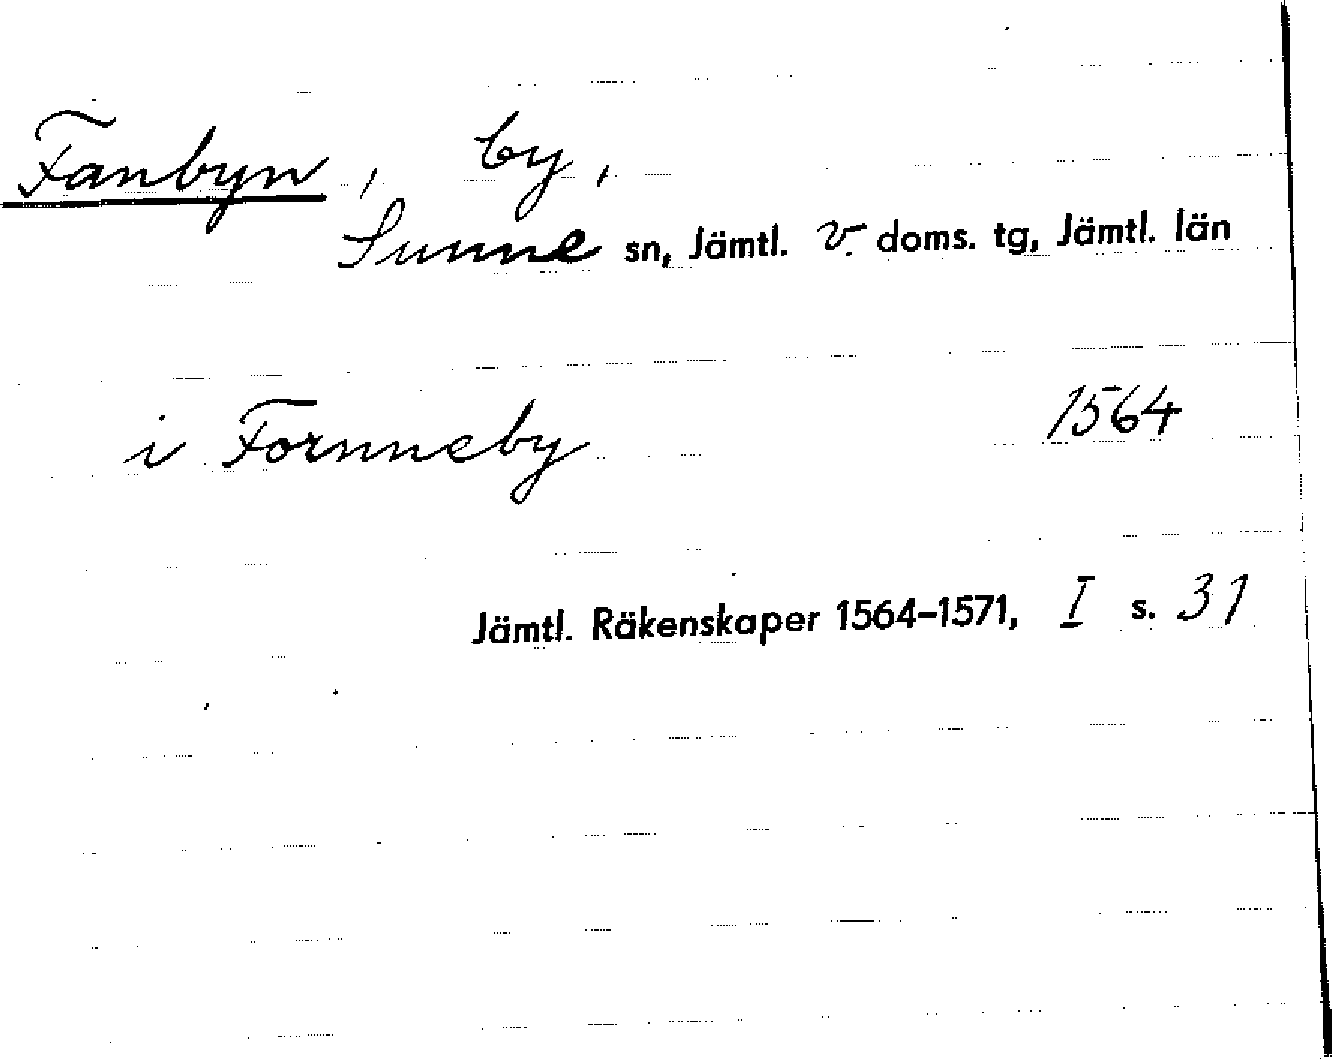 Fanbyn, by,
Sunne sn, Jämtl. v. doms. tg, Jämtl. län
i Fornneby 1564
Jämtl. Räkenskaper 1564–1571, I s. 31